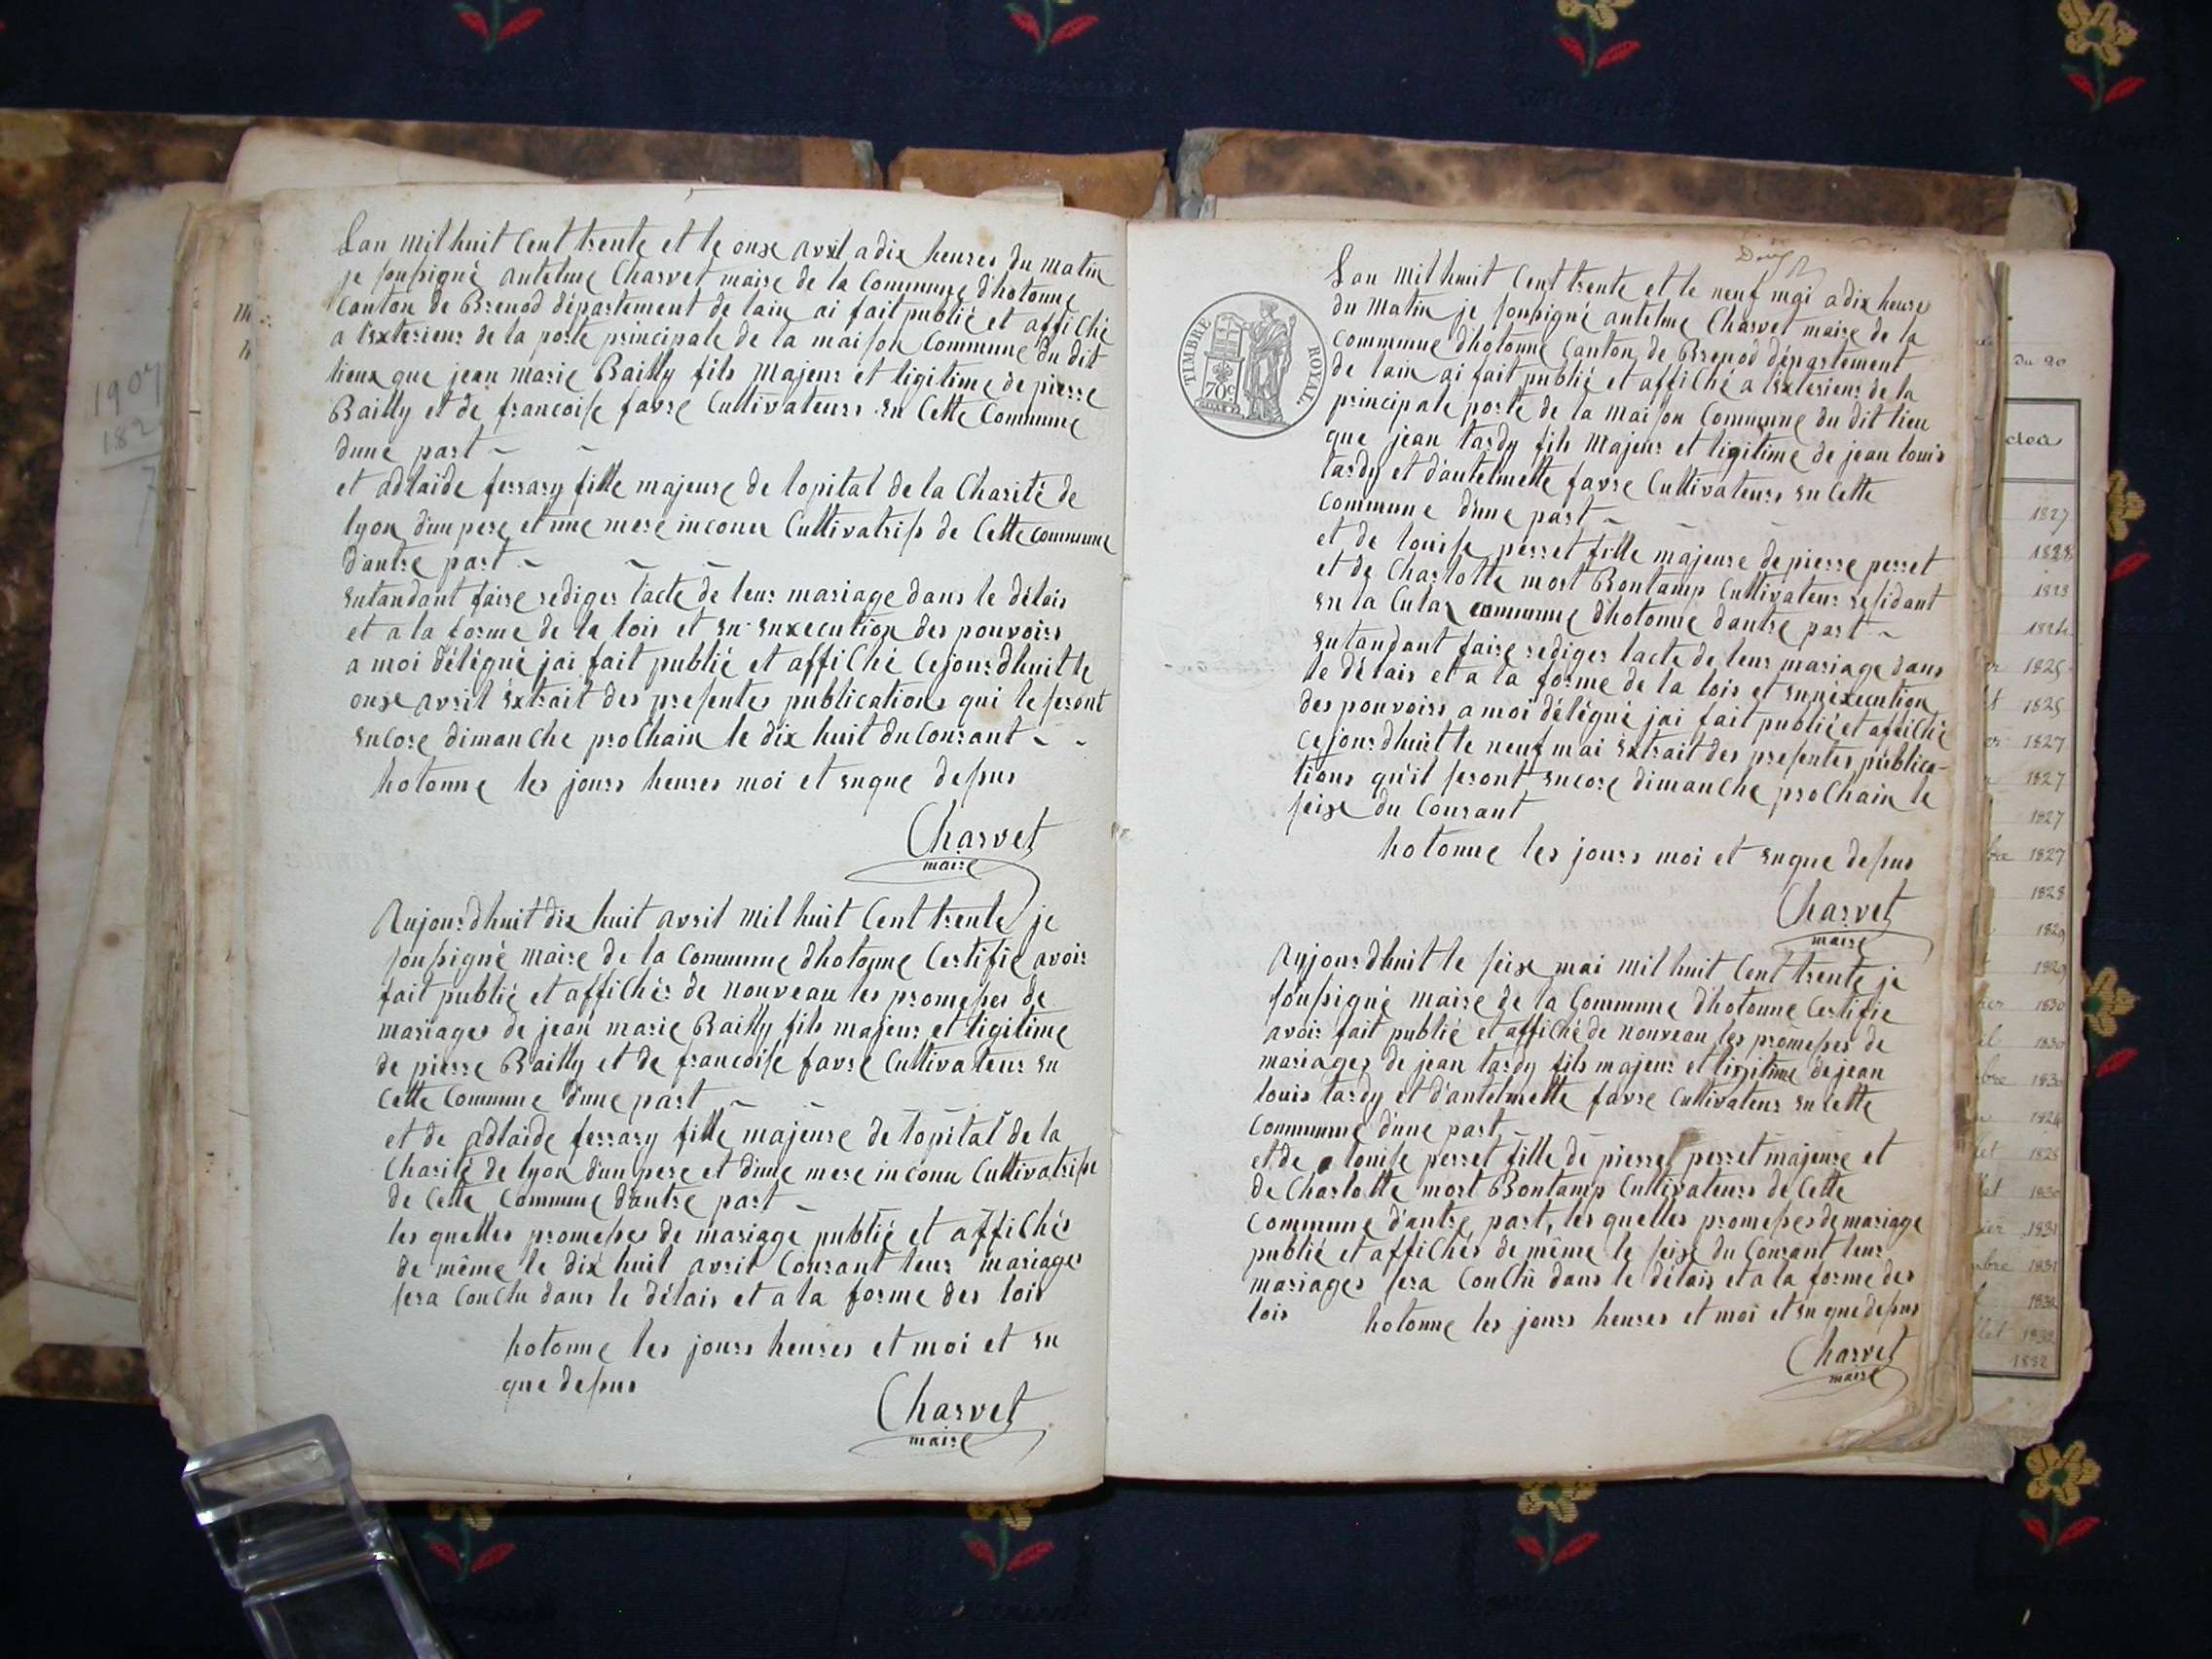 Lan mil huit Cent trente et le onze avril a dix heures du matin
je soussigné antelme Charvet maire de la Commune d'hotonne
Canton de Brenod département de lain ai fait publié et affiché
a lexterieur de la porte principale de la maison Commune du dit
lieux que jean marie Bailly fils majeur et ligitime de pierre
Bailly et de francoise favre Cultivateurs en Cette Commune
dune part
et adlaide ferrary fille majeure de lopital de la Charité de
lyon d'un pere et une mere inconu Cultivatrise de Cette commune
dautre part
entandant faire rediger lacte de leur mariage dans le délais
et a la forme de la lois et en enxecution des pouvoirs
a moi délégué jai fait publié et affiché Cejourdhuit le
onze avril Extrait des presentes publications qui le seront
encore dimanche prochain le dix huit du Courant
hotonne les jours heures moi et enque dessus
Charvet
maire
Aujourdhuit dix huit avril mil huit Cent trente je
soussigné maire de la Commune dhotonne Certifie avoir
fait publié et affichér de nouveau les promesses de
mariages de jean marie Bailly fils majeur et ligitime
de pierre Bailly et de francoise favre Cultivateur en
Cette Commune d'une part
et de adlaide ferrary fille majeure de lopital de la
Charité de lyon d'un pere et d'une mere inconu Cultivatrise
de Cette Commune dautre part
les quelles promesses de mariage publié et affichés
de même le dix huit avril Courant leur mariages
sera Conclu dans le délais et a la forme des lois
hotonne les jours heures et moi et en
que dessus
Charvet
maire
TIMBRE ROYAL
70c
Lan mil huit Cent trente et le neuf mai a dix heures
du matin je soussigné antelme Charvet maire de la
commune dhotonne Canton de Brenod département
de lain ai fait publié et affiché a lexterieur de la
principale porte de la maison Commune du dit lieu
que jean tardy fils majeur et ligitime de jean louis
tardy et d'antelmette favre Cultivateurs en Cette
commune d'une part
et de louise perret fille majeure de pierre perret
et de Charlotte mort Bontamp Cultivateur residant
en la Cula commune d'hotonne dautre part
entandant faire rediger lacte de leur mariage dans
le délais et a la forme de la lois et en néxecution
des pouvoirs a moi délégué jai fait publié et affiché
Cejourdhuit le neuf mai Extrait des presentes publica-
tions qu'il seront encore dimanche prochain le
seize du Courant
hotonne les jours moi et enque dessus
Charvet
maire
Aujourdhuit le seize mai mil huit Cent trente je
soussigné maire de la Commune d'hotonne Certifie
avoir fait publié et affiché de nouveau les promesses de
mariages de jean tardy fils majeur et ligitime de jean
louis tardy et d'antelmette favre Cultivateur en Cette
Commune d'une part
et de louise perret fille de pierre perret majeure et
de Charlotte mort Bontamp Cultivateurs de Cette
Commune d'autre part, les quelles promesses de mariage
publié et affichés de même le seize du Courant leur
mariages sera Conclu dans le délais et a la forme des
lois
hotonne les jours heures et moi et en que dessus
Charvet
maire
1907
du 20
1827
1828
1823
1824
1825
1825
1827
1827
1827
1827
1828
1829
1829
1830
1830
1830
1824
1828
1830
1831
1831
1832
1832
1832